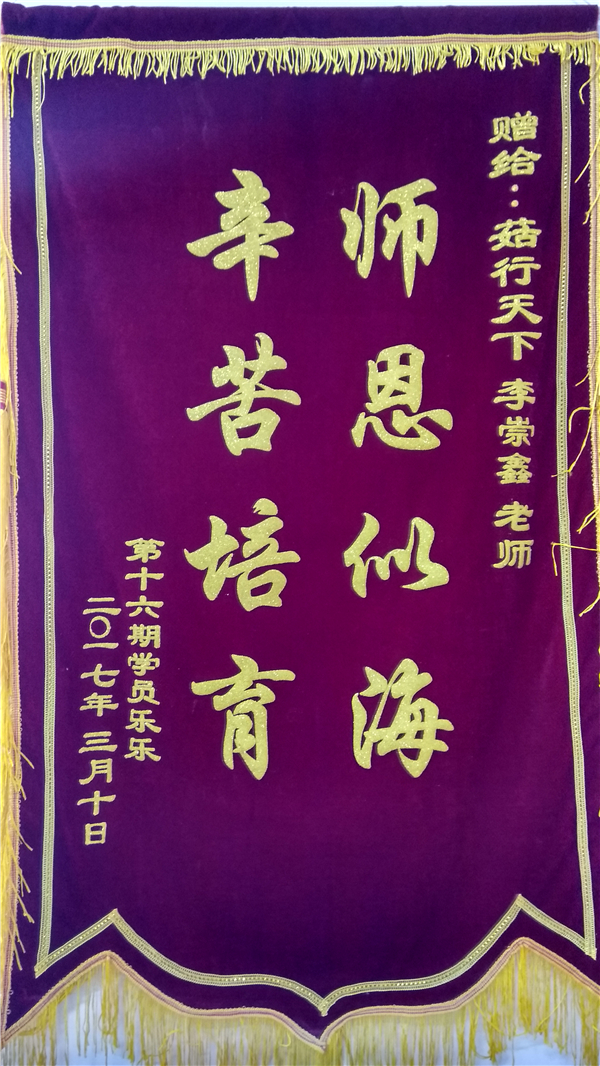 赠给：菇行天下 李崇鑫 老师
师恩似海
辛苦培育
第十六期学员乐乐
二〇一七年 三月十日